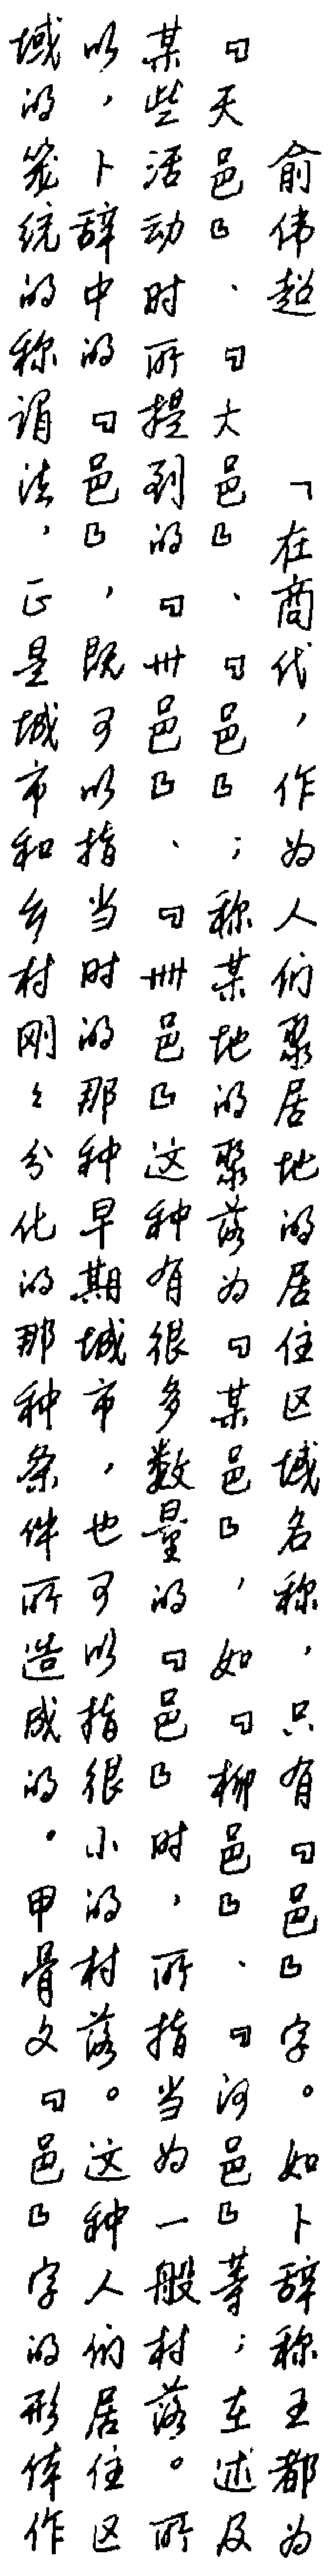 俞伟超　「在商代，作为人们聚居地的居住区域名称，只有『邑』字。如卜辞称王都为
『天邑』、『大邑』、『邑』；称某地的聚落为『某邑』，如『柳邑』、『河邑』等；在述及
某些活动时所提到的『卅邑』、『卌邑』这种有很多数量的『邑』时，所指当为一般村落。所
以，卜辞中的『邑』，既可以指当时的那种早期城市，也可以指很小的村落。这种人们居住区
域的笼统的称谓法，正是城市和乡村刚々分化的那种条件所造成的。甲骨文『邑』字的形体作